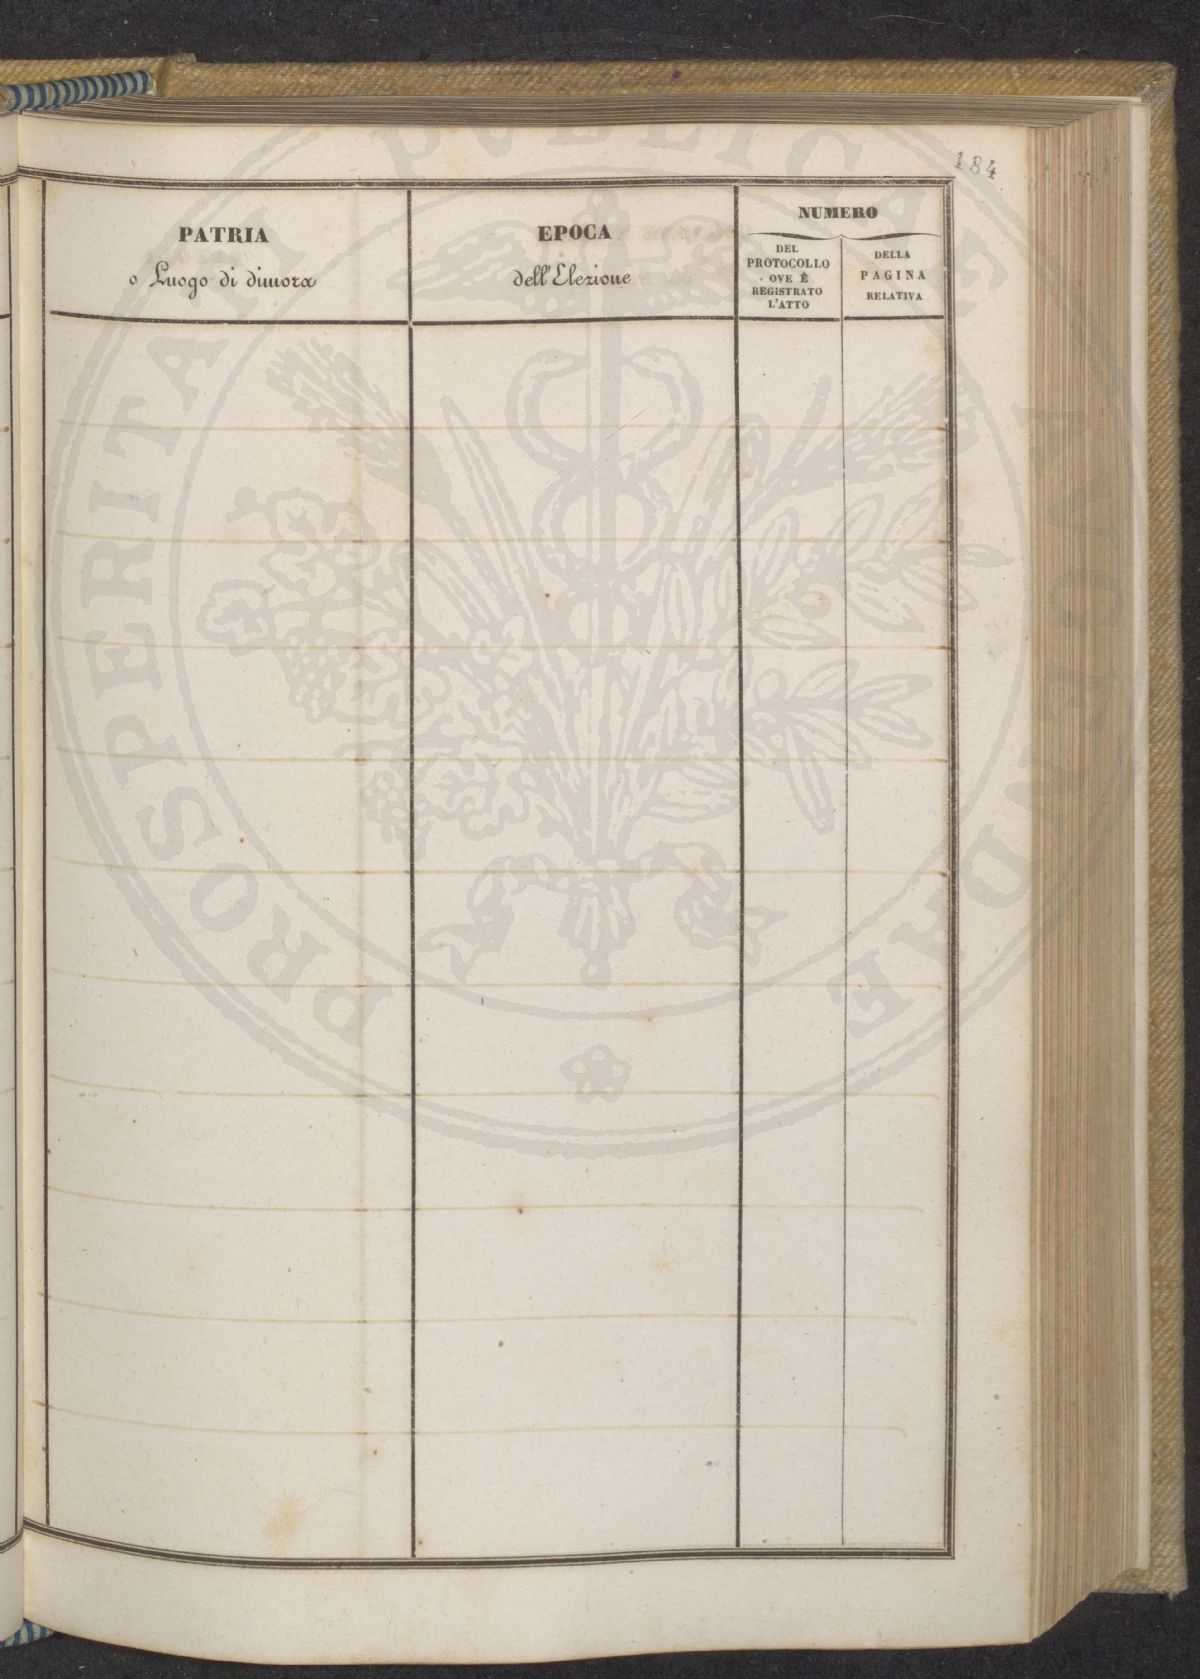 184
PATRIA
o Luogo di dimora
EPOCA
dell'Elezione
NUMERO
DEL
PROTOCOLLO
OVE È
REGISTRATO
L'ATTO
DELLA
PAGINA
RELATIVA
PROSPERITATI PVBLICAE AVGENDAE